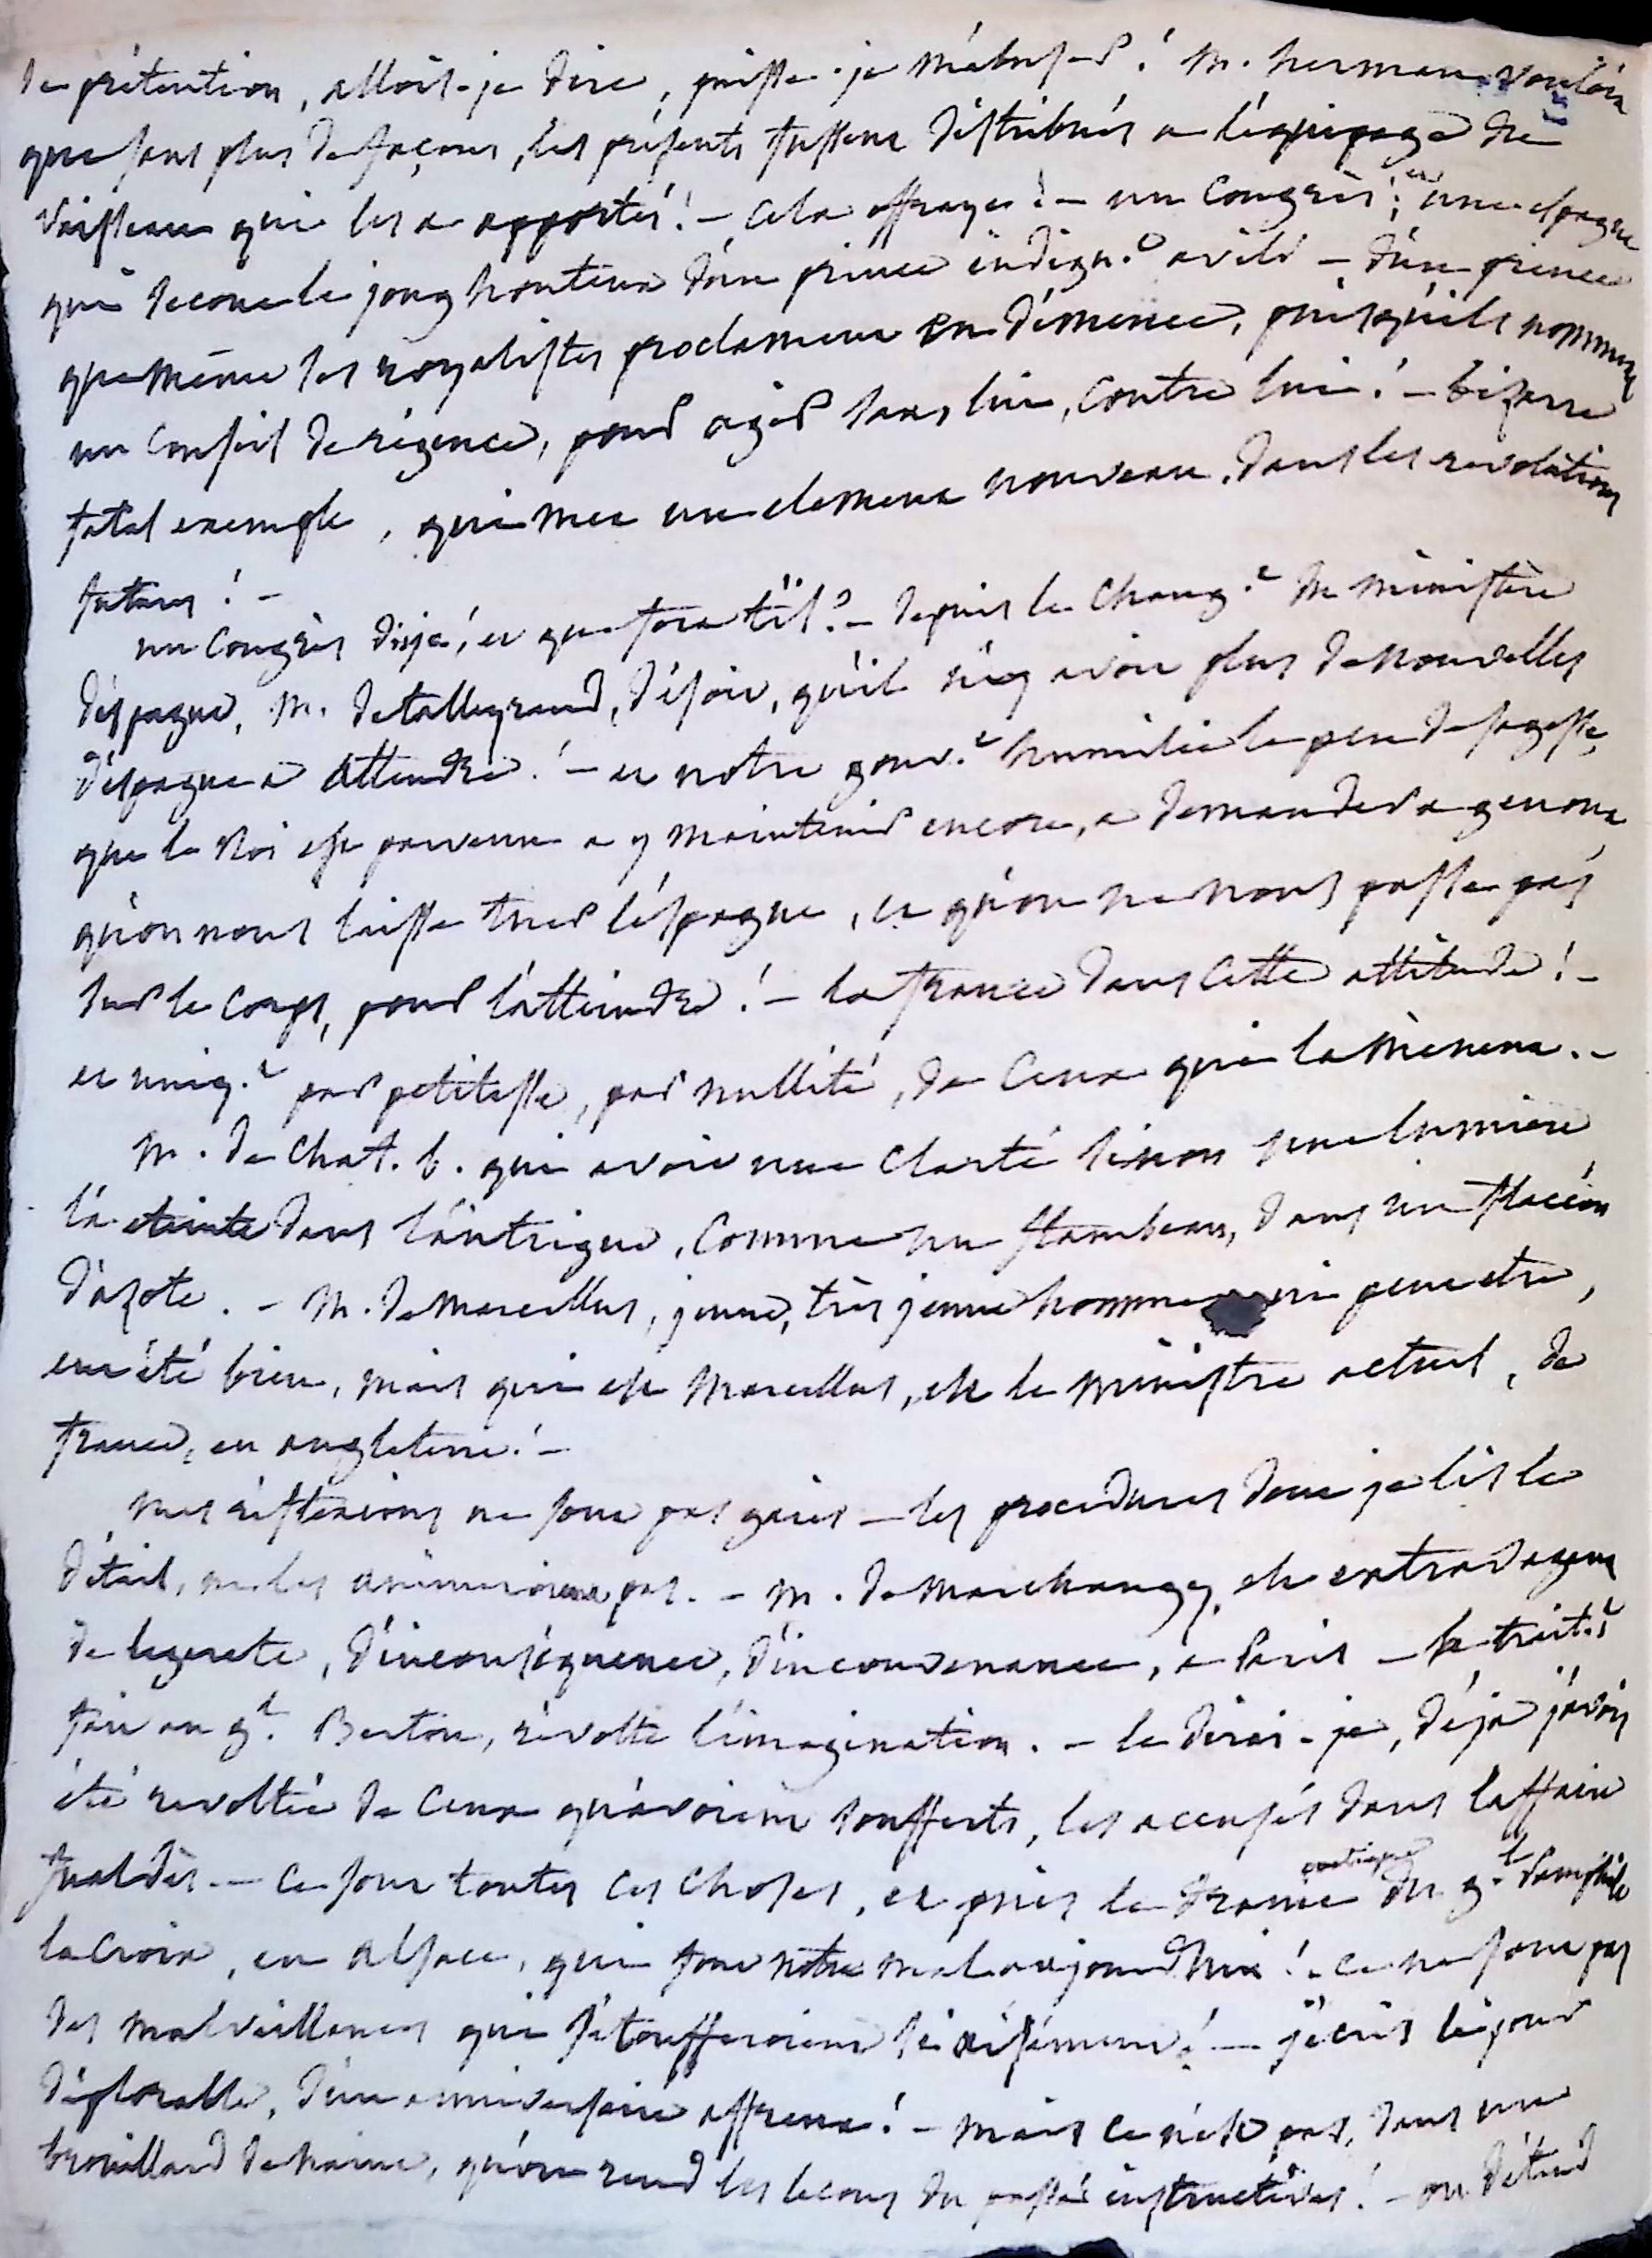 de prétention, allois-je dire, puisse-je m'abuser! M. herman vouloir
que sans plus de façons, les présents fussent distribués a l'équipage du
vaisseau qui les a apportés! – cela effraye! – un Congrès; et une espagne
qui secoue le joug honteux d'un prince indigne avili – d'un prince
que même les royalistes proclament en démence, puisqu'ils nomment
un Conseil de régence, pour agir sans lui, contre lui! – bizarre
fatal exemple, qui met un element nouveau, dans les revolutions
futures! –
un Congrès disje! et que fera t'il? – depuis le chang.t du ministère
d'espagne, M. de tallegrand, disoit, qu'il n'y avoit plus de nouvelles
d'espagne a attendre! – et notre gouv.t humilie le peu de sagesse,
que le Roi est parvenu a y maintenir encore, a demander a genoux,
qu'on nous laisse tuer l'éspagne, et qu'on ne nous passe pas
sur le corps, pour l'atteindre! – la france dans cette attitude! –
et uniq.t par petitesse, par nullité, de ceux qui la mènent. –
M. de Chat. b. qui avoit une clarté sinon une lumière
l'a eteinte dans l'intrigue, comme un flambeau, dans un flacon
d'azote. – M. de Marcellus, jeune, très jeune homme qui peut etre,
eut été bien, mais qui est Marcellus, est le ministre actuel, de
france, en angleterre! –
mes réflexions ne sont pas gaies – les procedures dont je lis le
détail, ne les animeroient pas. – M. de Marchangy, est extravagant
de legerete, d'inconséquence, d'inconvenance, a Paris – le trait.t
fait au g.l Berton, révolte l'imagination. – le dirai-je, déja j'avois
été revoltée de ceux qu'avoient soufferts, les accusés dans l'affaire
fualdès. – ce sont toutes ces choses, et puis le drame pratiqué du g.l Pamphile
lacroix, en alsace, qui font notre mal aujourd'hui! – ce ne sont pas
des malveillances qui s'etoufferoient si aisément! – j'ecris le jour
déplorable, d'un anniversaire affreux! – mais ce n'est pas, dans un
brouillard de haine, qu'on rend les lecons du passé instructives! – on détend